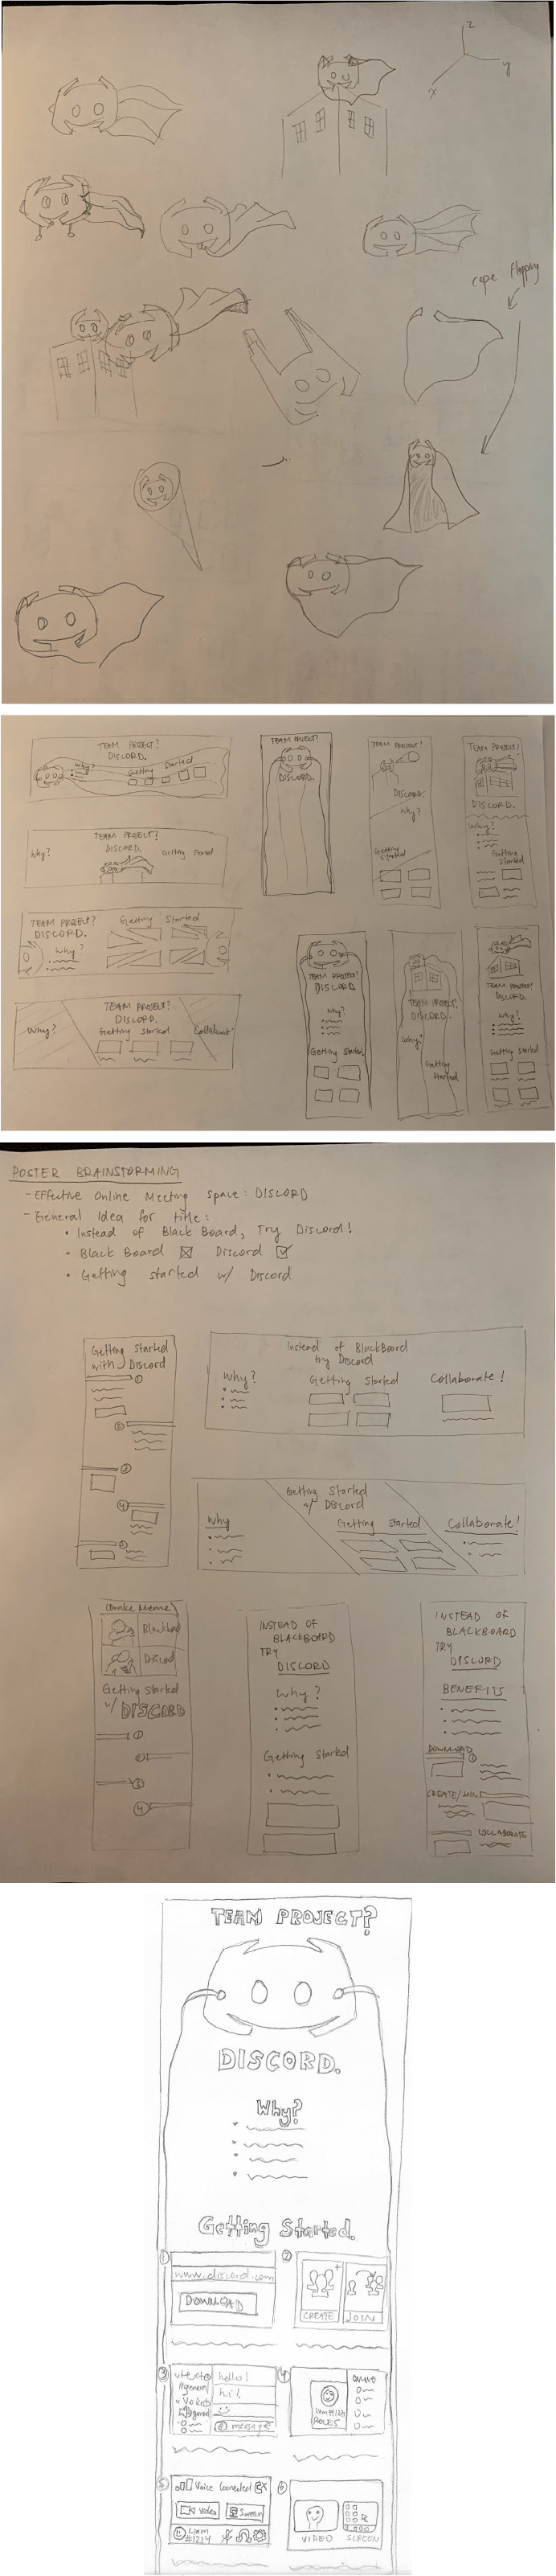 z
y
x
cape flapping
TEAM PROJECT?
DISCORD.
Why?
Getting Started
TEAM PROJECT?
DISCORD.
TEAM PROJECT!
DISCORD.
Why?
Getting Started
TEAM PROJECT?
DISCORD.
Why?
Getting Started
Why?
TEAM PROJECT?
DISCORD.
Getting Started
TEAM PROJECT?
DISCORD.
Why?
Getting Started
TEAM PROJECT?
DISCORD.
Why?
Getting Started
TEAM PROJECT?
DISCORD.
Why?
Getting Started
TEAM PROJECT?
DISCORD.
Why?
Getting Started
Why?
TEAM PROJECT?
DISCORD.
Getting Started
Collaborate!
POSTER BRAINSTORMING
- Effective Online Meeting Space: DISCORD
- General Idea for title:
• Instead of Black Board, Try Discord!
• Black Board ☒ Discord ☑
• Getting started w/ Discord
Getting Started
with Discord
1
2
3
4
5
Instead of BlackBoard
try Discord
Why?
Getting Started
Collaborate!
Getting Started
w/ Discord
Why
Getting Started
Collaborate!
(Drake Meme)
Blackboard
Discord
Getting Started
w/ DISCORD
1
2
3
4
INSTEAD OF
BLACKBOARD
TRY
DISCORD
Why?
Getting Started
INSTEAD OF
BLACKBOARD
TRY
DISCORD
BENEFITS
DOWNLOAD
1
CREATE/JOIN
COLLABORATE
TEAM PROJECT?
DISCORD.
Why?
Getting Started.
1
www.discord.com
DOWNLOAD
2
CREATE
JOIN
3
hello!
hi!
message
4
ROLES
5
Voice Connected
Video
Screen
Liam
#1214
6
VIDEO
SCREEN